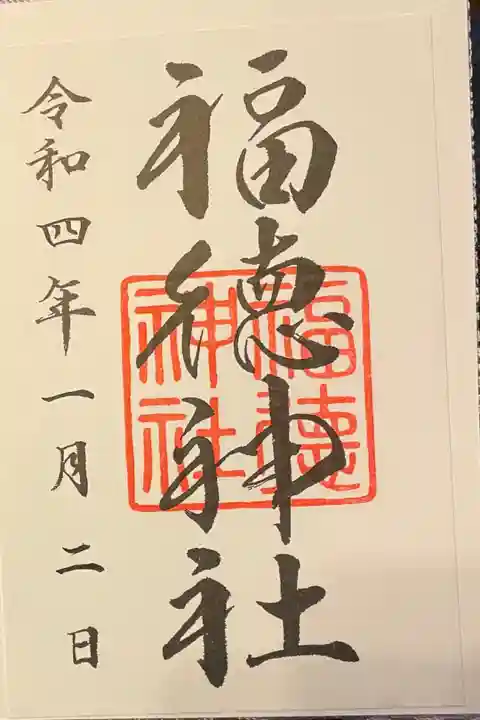 福德神社
福德神社
令和四年一月二日